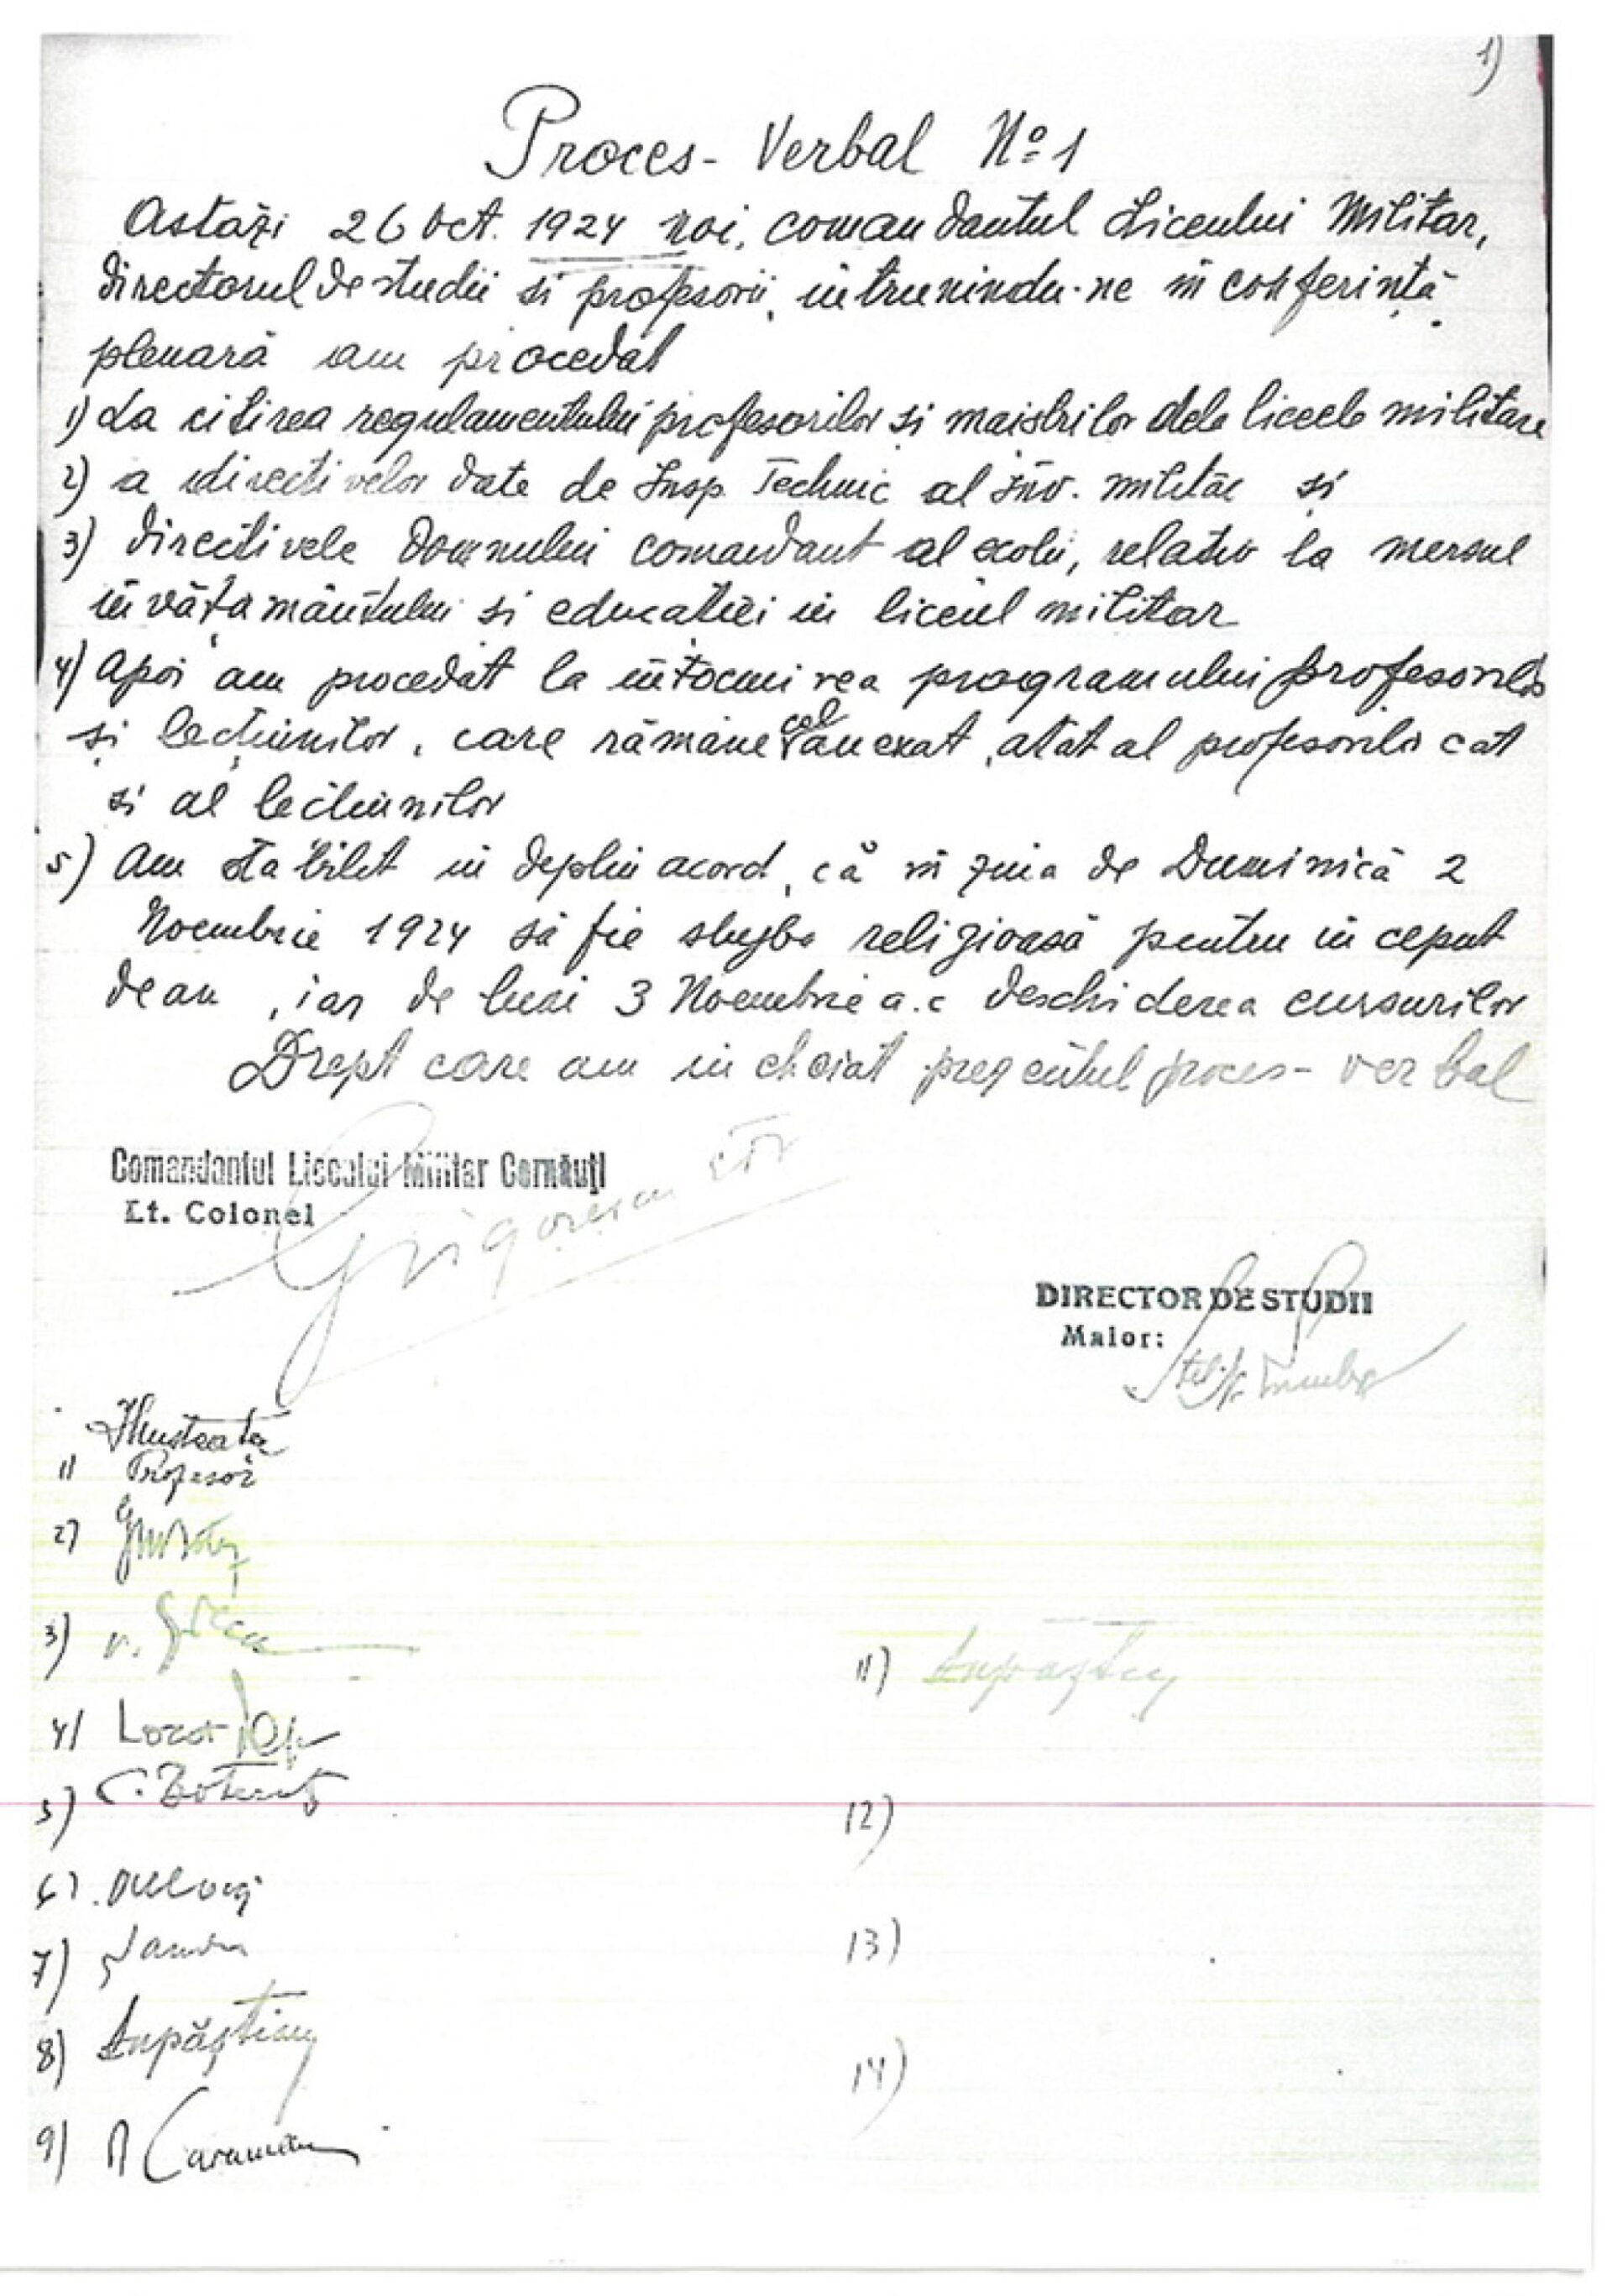 1)
Proces-Verbal No 1
Astăzi 26 Oct. 1924 noi, comandantul Liceului Militar,
directorul de studii si profesorii, întrunindu-ne in conferință
plenară am procedat
1) La citirea regulamentului profesorilor și maistrilor dela liceele militare
2) a directivelor date de Insp. Technic al Înv. militar si
3) directivele Domnului comandant al scolii, relativ la mersul
învățamântului si educatiei in liceul militar
4) Apoi am procedat la întocmirea programului profesorilor
și lecțiunilor, care rămâne cel anexat, atât al profesorilor cat
si al lectiunilor
5) Am stabilit in deplin acord, că in ziua de Duminică 2
Noembrie 1924 să fie slujba religioasă pentru inceput
de an, iar de luni 3 Noembrie a.c deschiderea cursurilor
Drept care am incheiat prezentul proces-verbal
Comandantul Liceului Militar Cernăuți
Lt. Colonel
Grigorescu
DIRECTOR DE STUDII
Maior:
1)
Profesor
2)
3)
11)
4)
5)
12)
6)
7)
13)
8) Lupăștianu
14)
9)